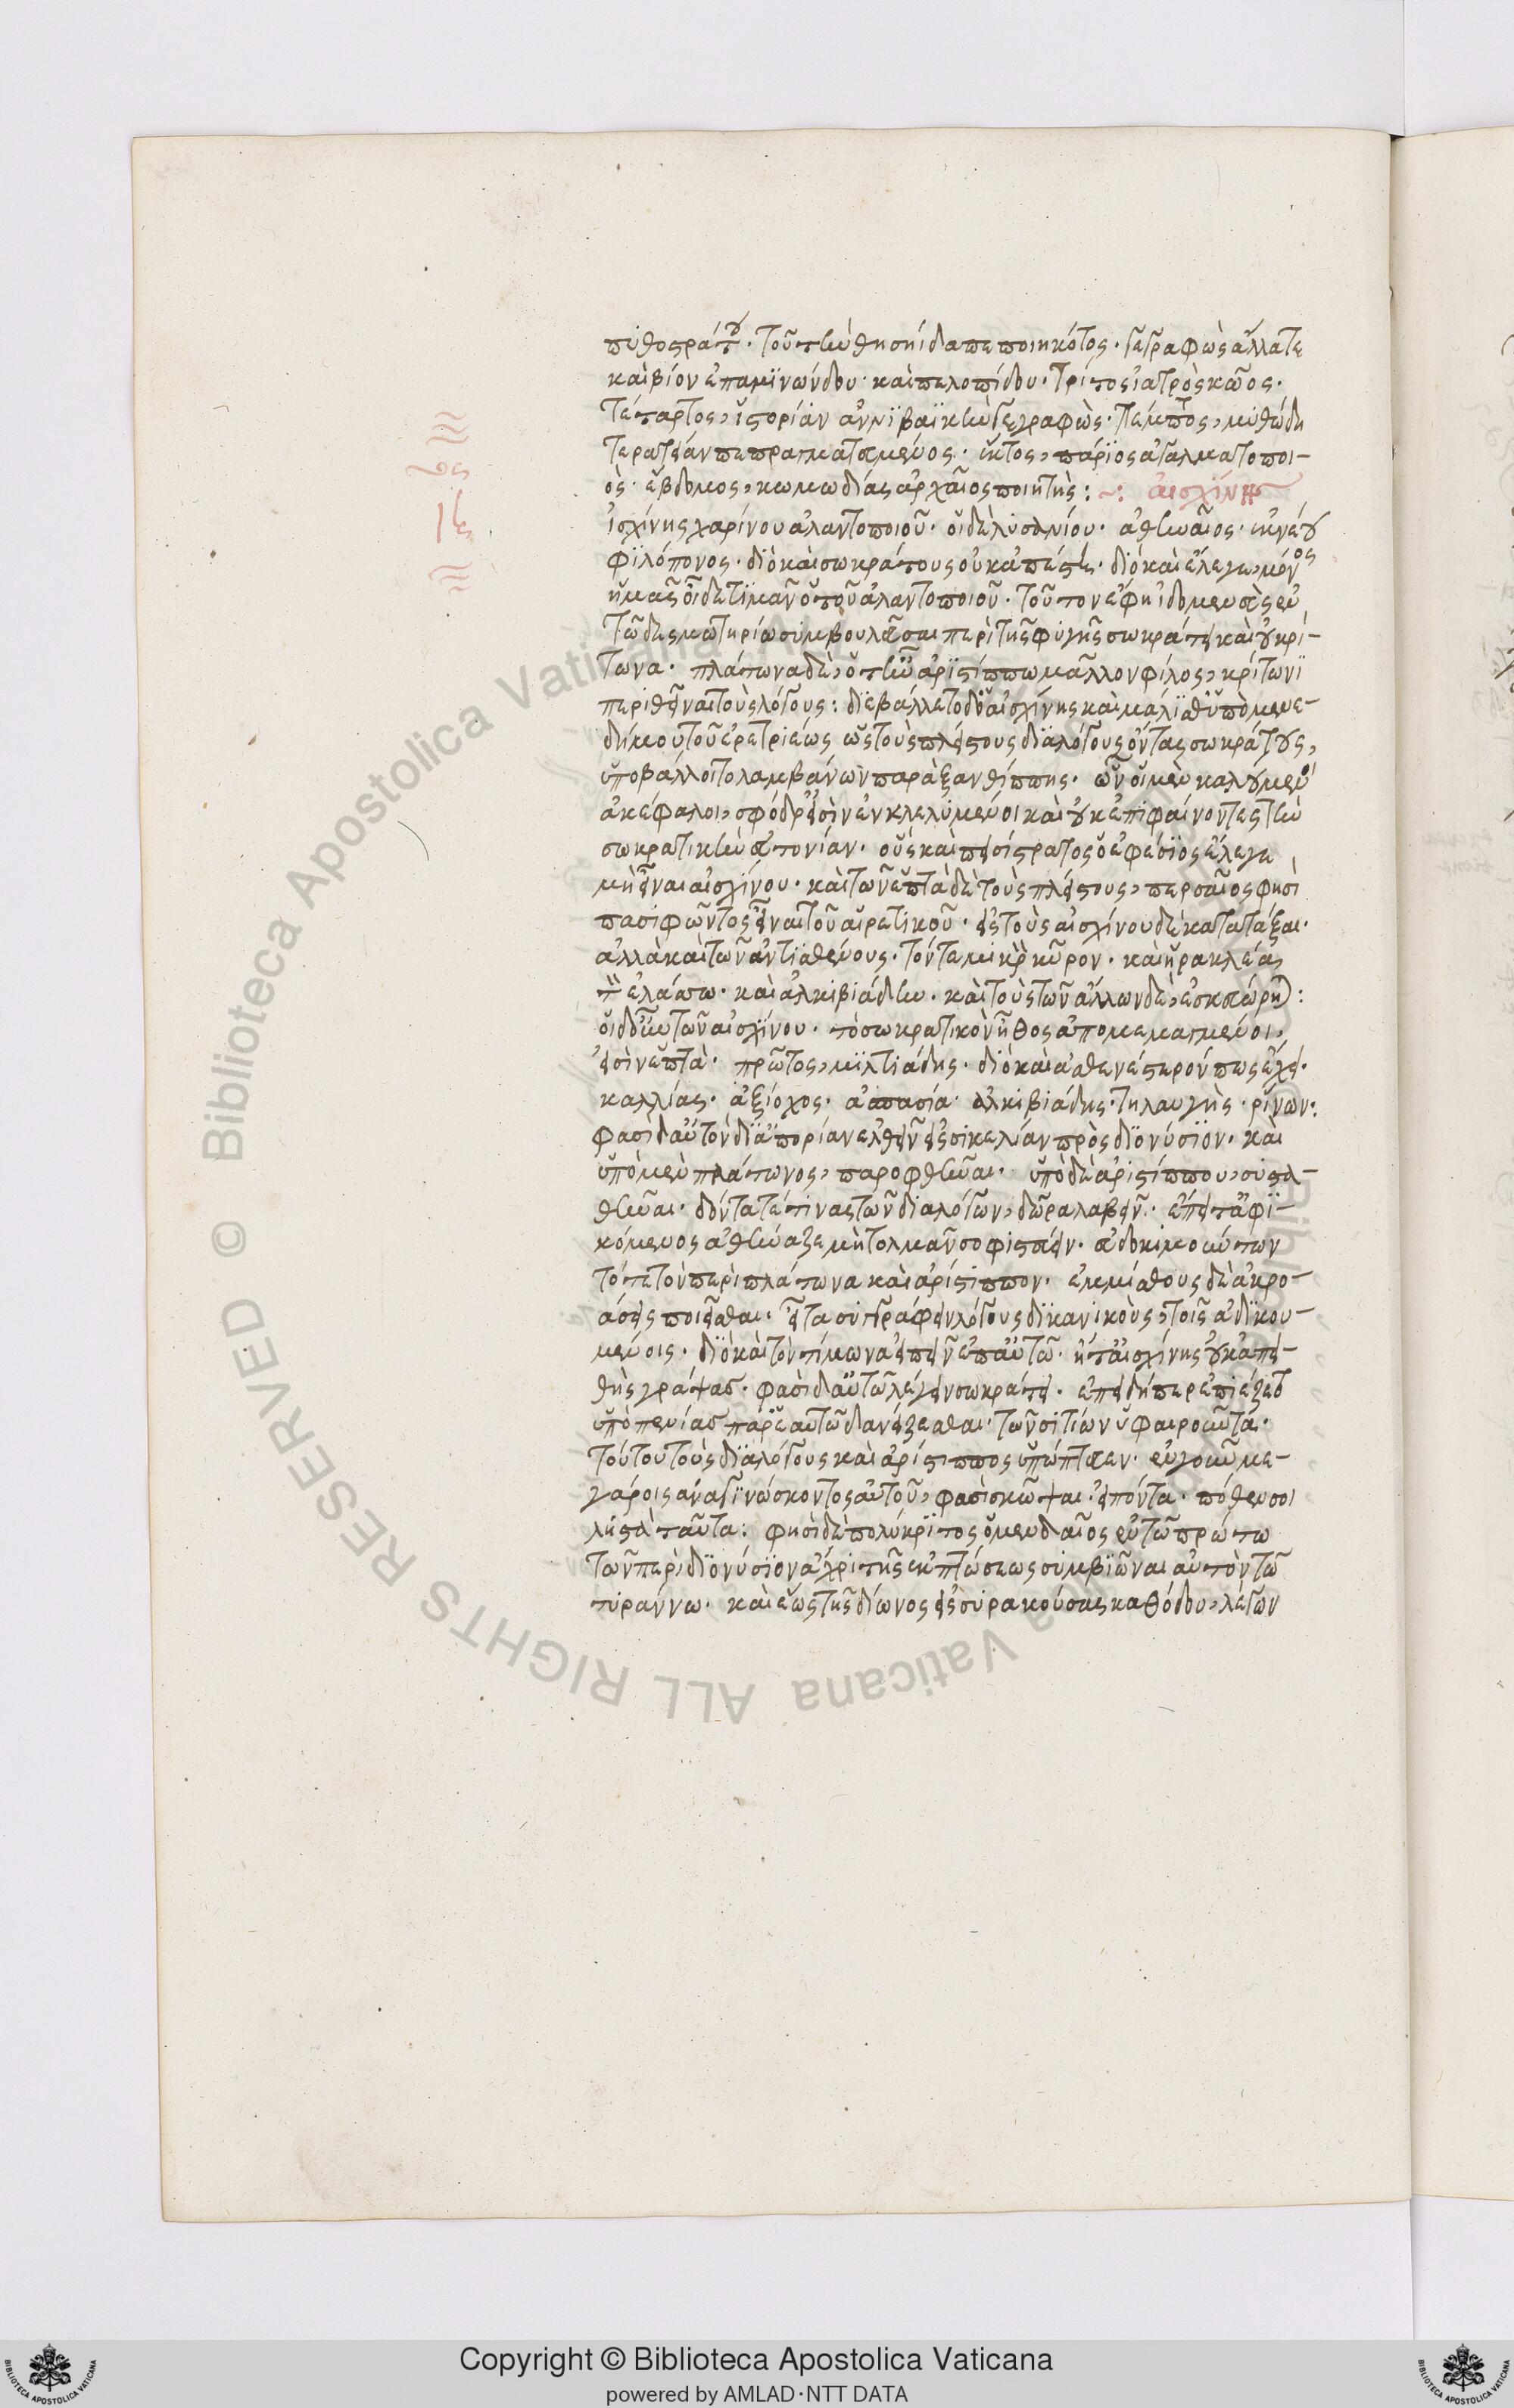 πυθοστράτου· τοῦ τὴν θησηΐδα πεποιηκότος· γεγραφὼς ἄλλατε
καὶ βίον ἐπαμινώνδου· καὶ πελοπίδου· τρίτος ἰατρὸς κῶος·
τέταρτος, ἱστορίαν ἀννιβαϊκὴν γεγραφὼς· πέμπτος, μυθώδη
τερατείαν πεπραγματευμένος· ἕκτος, πάριος ἀγαλματοποι-
ὸς· ἕβδομος, κωμωδίας ἀρχαίος ποιητὴς: ~: αἰσχίνης
ἰσχίνης χαρίνου ἀλαντοποιοῦ· οἱ δὲ λυσανίου· ἀθηναῖος· ἐκ νέου
φιλόπονος· διὸ καὶ σωκράτους οὐκ ἀπέστη· διὸ καὶ ἔλεγε, μόνος
ἡμᾶς οἶδε τιμᾶν ὁ τοῦ ἀλαντοποιοῦ· τοῦτον ἔφη ἰδομενεὺς ἐν
τῶ δεσμωτηρίω συμβουλεῦσαι περὶ τῆς φυγῆς σωκράτει καὶ οὐ κρί-
τωνα· πλάτωνα δὲ, ὅτι ἦν ἀριστίππω μᾶλλον φίλος, κρίτωνι
περιθεῖναι τοὺς λόγους: διεβάλλετο δ' ὁ αἰσχίνης καὶ μάλισθ' ὑπὸ μενε-
δήμου τοῦ ἐρετριέως ὡς τοὺς πλείστους διαλόγους ὄντας σωκράτους,
ὑποβάλλοιτο λαμβάνων παρὰ ξανθίππης· ὧν οἱ μὲν καλούμενοι
ἀκέφαλοι, σφόδρ' εἰσὶν ἐκλελυμένοι καὶ οὐκ ἐπιφαίνοντες τὴν
σωκρατικὴν εὐτονίαν· οὓς καὶ πεισίστρατος ὁ ἐφέσιος ἔλεγε
μὴ εἶναι αἰσχίνου· καὶ τῶν ἑπτὰ δὲ τοὺς πλείστους, περσαῖος φησὶ
πασιφῶντος εἶναι τοῦ αἱρετικοῦ· εἰς τοὺς αἰσχίνου δὲ κατατάξαι·
ἀλλὰ καὶ τῶν ἀντισθένους· τόν τε μικρὸν κῦρον· καὶ ἡρακλέα
τὸν ἐλάσσω· καὶ ἀλκιβιάδην· καὶ τοὺς τῶν ἄλλων δὲ, ἐσκευώρηται:
οἱ δ' οὖν τῶν αἰσχίνου· τὸ σωκρατικὸν ἦθος ἀπομεμαγμένοι,
εἰσὶν ἑπτὰ· πρῶτος, μιλτιάδης· διὸ καὶ ἀσθενέστερόν πως ἔχει·
καλλίας· ἀξίοχος· ἀσπασία· ἀλκιβιάδης· τηλαυγὴς· ρίνων:
φασὶ δ' αὐτὸν δι' ἀπορίαν ἐλθεῖν εἰς σικελίαν πρὸς διονύσιον· καὶ
ὑπὸ μὲν πλάτωνος, παροφθῆναι· ὑπὸ δὲ ἀριστίππου, συστα-
θῆναι· δόντα τέ τινας τῶν διαλόγων, δῶρα λαβεῖν· ἔπειτ' ἀφι-
κόμενος ἀθήναζε μὴ τολμᾶν σοφιστεύειν· εὐδοκιμούντων
τότε τὸν περὶ πλάτωνα καὶ ἀρίστιππον· ἐμμίσθους δὲ ἀκρο-
άσεις ποιεῖσθαι· εἶτα συγγράφειν λόγους δικανικοὺς, τοῖς ἀδικου-
μένοις· διὸ καὶ τὸν τίμωνα εἰπεῖν ἐπ' αὐτῶ· ἥτ' αἰσχίνης οὐκ ἀπι-
θὴς γράψας· φασὶ δ' αὐτῶ λέγειν σωκράτη· ἐπειδήπερ ἐπιέζετο
ὑπὸ πενίας παρ' ἑαυτῶ δανείζεσθαι· τῶν σιτίων ὑφαιροῦντα·
τούτου τοὺς διαλόγους καὶ ἀρίστιππος ὑπώπτευεν· ἐν γοῦν με-
γάροις ἀναγινώσκοντος αὐτοῦ, φασὶ σκῶψαι· εἰπόντα· πόθεν σοι
ληστὰ ταῦτα: φησὶ δὲ πολύκριτος ὁ μενδαῖος ἐν τῶ πρώτω
τῶν περὶ, διονύσιον ἄχρι τῆς ἐκπτώσεως συμβιῶναι αὐτὸν τῶ
τυράννω· καὶ ἕως τῆς δίωνος εἰς συρακούσας καθόδου, λέγων